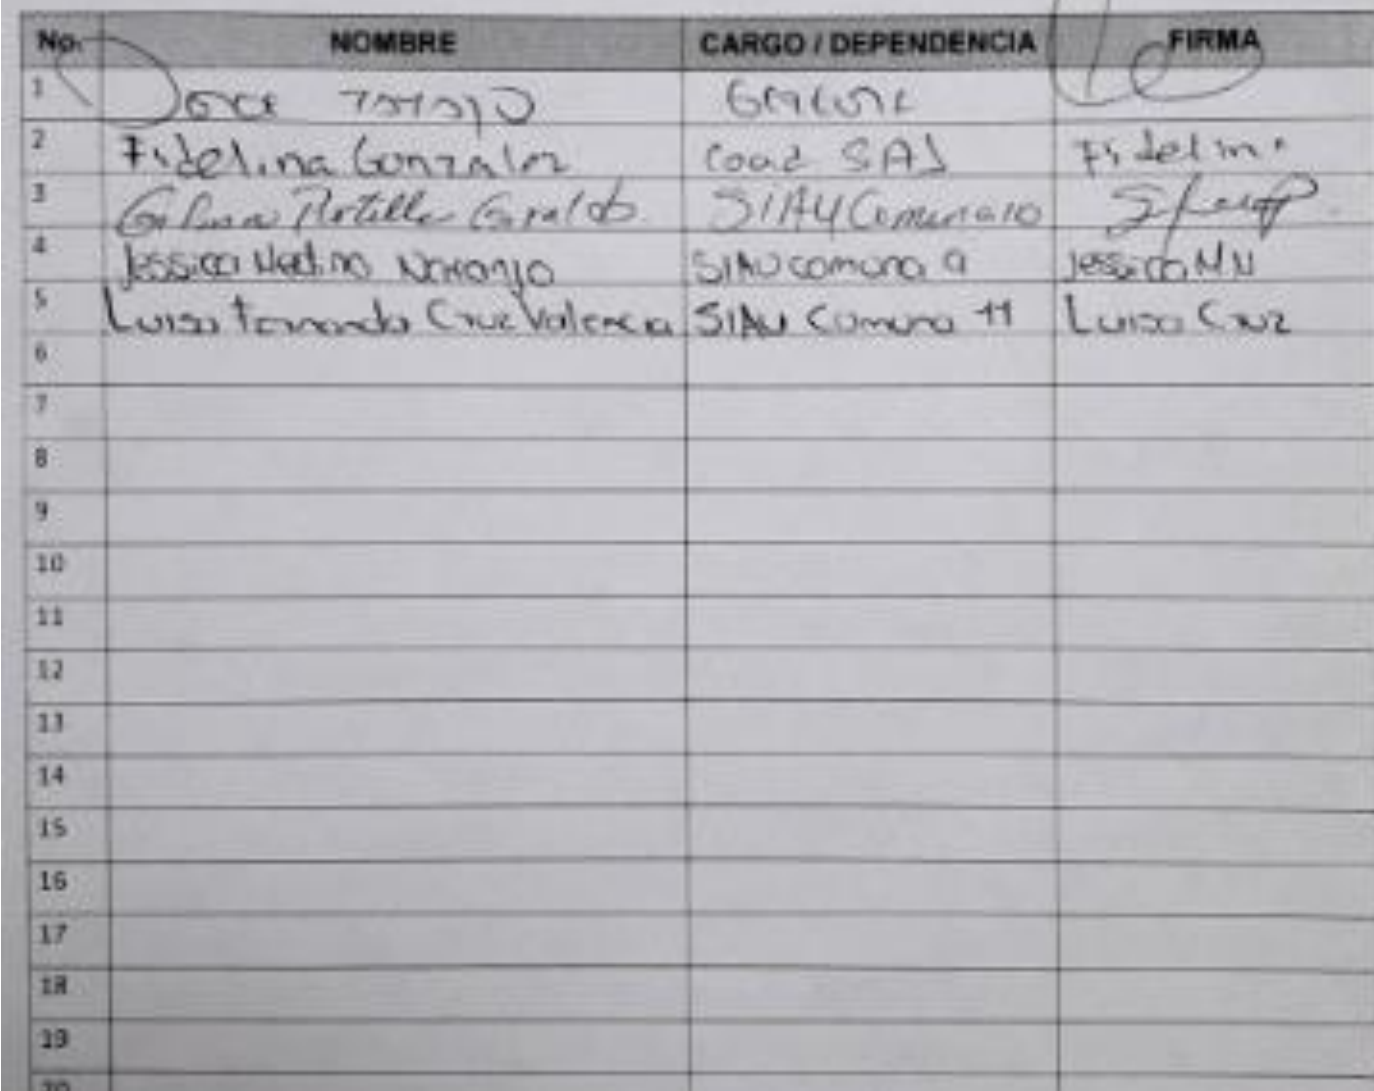 No. NOMBRE CARGO / DEPENDENCIA FIRMA
1
2 Fidelina Gonzalez Coad SAJ Fidelina
3 Portilla Giraldo SIAU Comuna 10
4 Jessica Medina Naranjo SIAU comuna 9 Jessica MN
5 Luisa Fernanda Cruz Valencia SIAU Comuna 11 Luisa Cruz
6
7
8
9
10
11
12
13
14
15
16
17
18
19
20